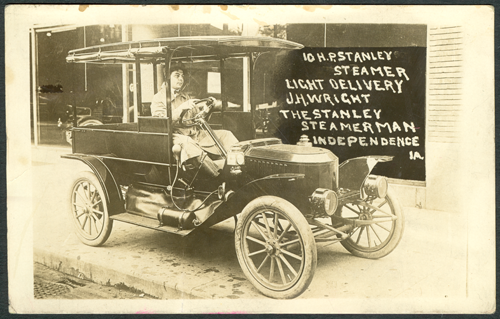 10 H.P. STANLEY
STEAMER
LIGHT DELIVERY
J.H. WRIGHT
THE STANLEY
STEAMER MAN
INDEPENDENCE
IA.